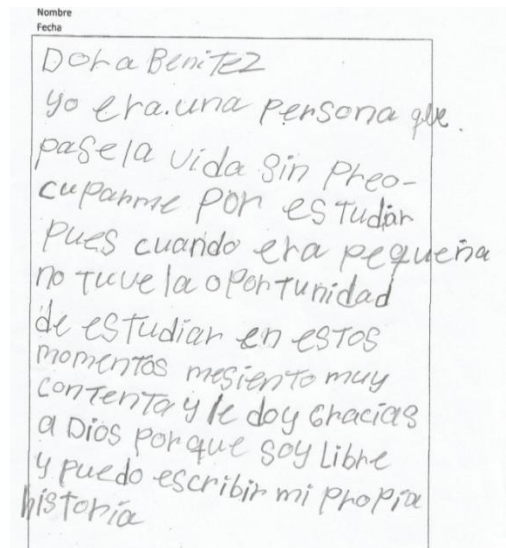 Nombre
Fecha
Dora Benitez
yo era.una persona que.
pase la vida sin preo-
cuparme por estudar
pues cuando era pequeña
no tuve la oportunidad
de estudiar en estos
momentos mesiento muy
contenta y le doy gracias
a Dios porque soy Libre
y puedo escribir mi propia
historia